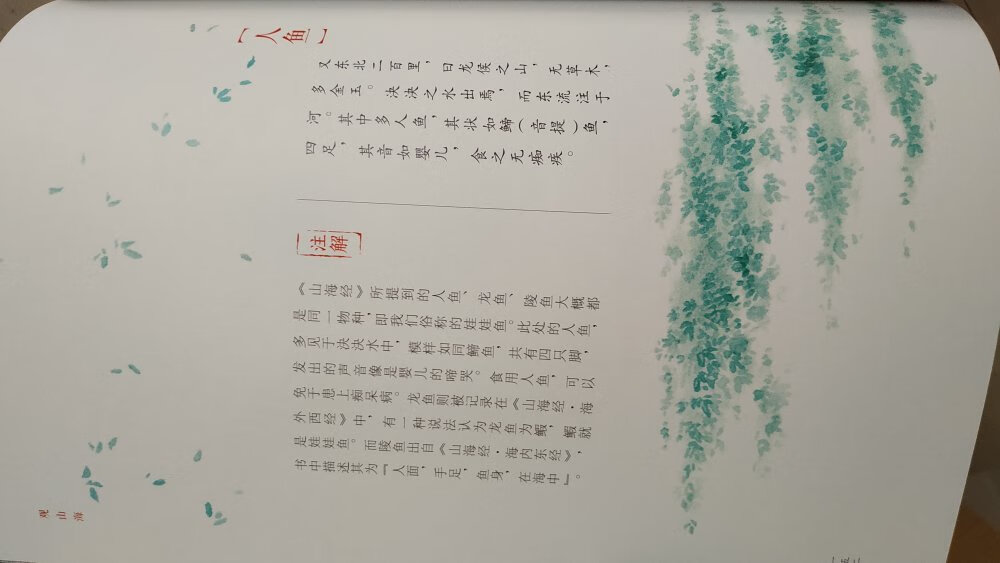 【人鱼】
又东北二百里，曰龙侯之山，无草木，
多金玉。决决之水出焉，而东流注于
河。其中多人鱼，其状如䱱（音提）鱼，
四足，其音如婴儿，食之无痴疾。
注解
《山海经》所提到的人鱼、龙鱼、陵鱼大概都
是同一物种，即我们俗称的娃娃鱼。此处的人鱼，
多见于决决水中，模样如同䱱鱼，共有四只脚，
发出的声音像是婴儿的啼哭。食用人鱼，可以
免于患上痴呆病。龙鱼则被记录在《山海经·海
外西经》中，有一种说法认为龙鱼为鰕，鰕就
是娃娃鱼。而陵鱼出自《山海经·海内东经》，
书中描述其为『人面，手足，鱼身，在海中』。
观山海